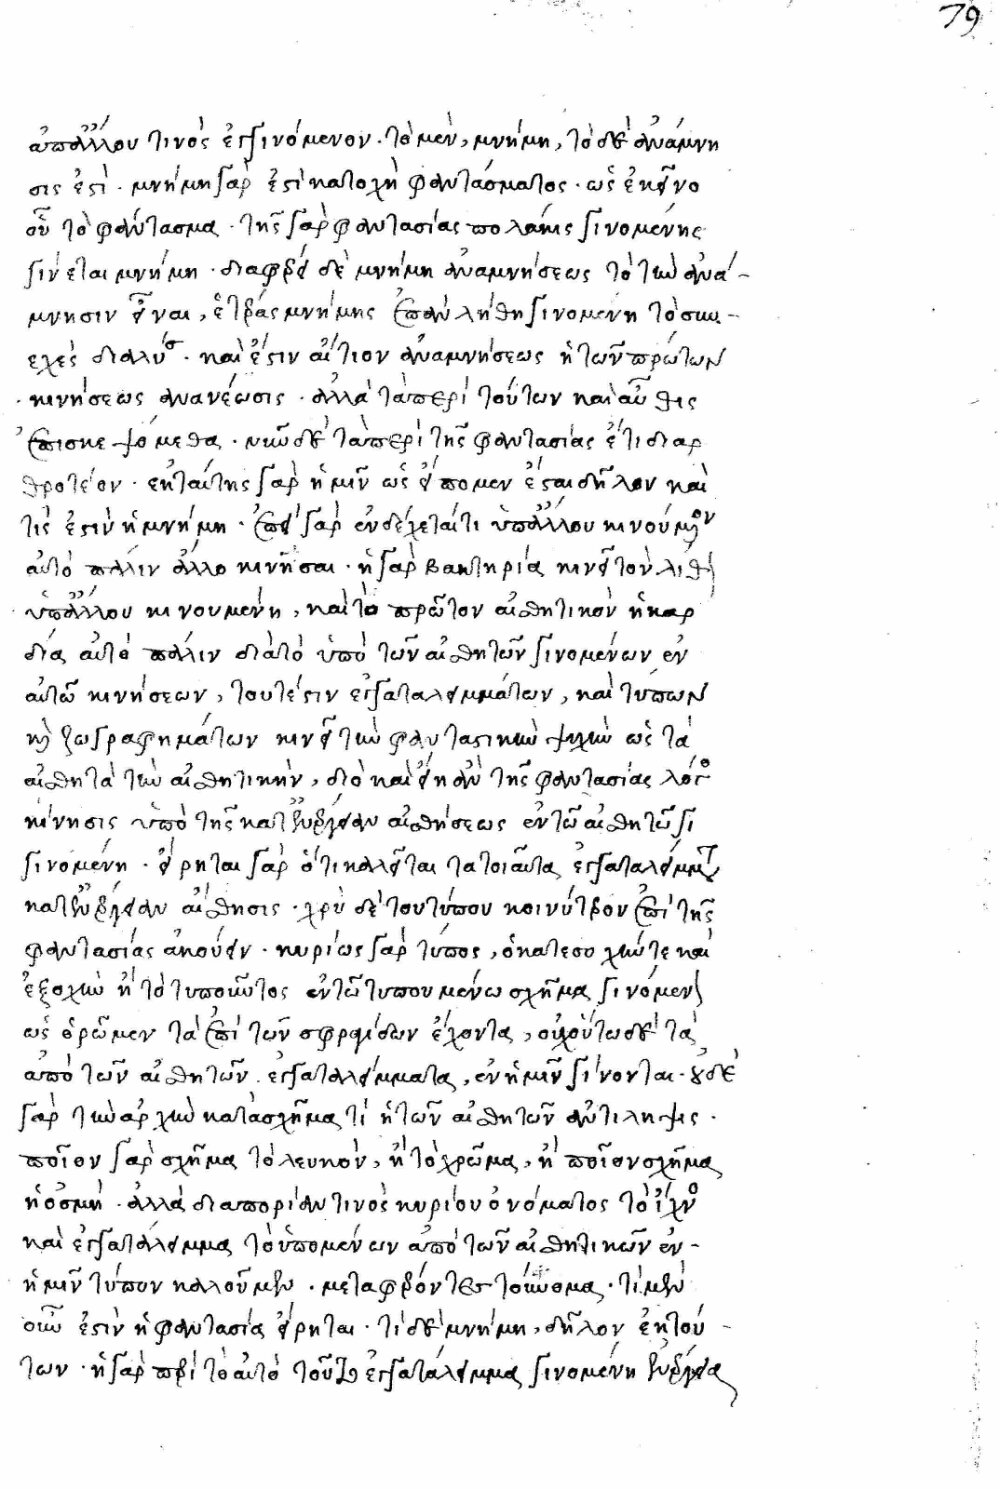 79
ἀπ' ἄλλου τινὸς ἐγγινόμενον. τὸ μὲν, μνήμη, τὸ δὲ ἀνάμνη
σις ἐστὶ. μνήμη γὰρ ἐστὶ κατοχὴ φαντάσματος. ὡς ἐκεῖνο
οὗ τὸ φάντασμα. τῆς γὰρ φαντασίας πολάκις γινομένης
γίνεται μνήμη. διαφέρει δὲ μνήμη ἀναμνήσεως τὸ τὴν ἀνά-
μνησιν εἶναι, ἑτέρας μνήμης ἐπὰν λήθη γινομένη τὸ συν-
εχὲς διαλύσ. καὶ ἔστιν αἴτιον ἀναμνήσεως ἡ τῶν πρώτων
κινήσεως ἀνανέωσις. ἀλλὰ τὰ περὶ τούτων καὶ αὖθις
ἐπισκεψόμεθα. νῦν δὲ τὰ περὶ τῆς φαντασίας ἔτι διαρ
θροτέον. ἐκ ταύτης γὰρ ἡμῖν ὡς εἴπομεν ἔσται δῆλον καὶ
τίς ἐστὶν ἡ μνήμη. ἐπεὶ γὰρ ἐνδέχεταί τι ὑπ' ἄλλου κινούμενον
αὐτὸ πάλιν ἄλλο κινῆσαι. ἡ γὰρ βακτηρία κινεῖ τὸν λίθον
ὑπ' ἄλλου κινουμένη, καὶ τὸ πρῶτον αἰσθητικὸν ἡ καρ
δία αὐτὸ πάλιν διὰ τὸ ὑπὸ τῶν αἰσθητῶν γινομένων ἐν
αὐτῶ κινήσεων, τουτέστιν ἐγκαταλειμμάτων, καὶ τύπων
καὶ ζωγραφημάτων κινεῖ τὴν φανταστικὴν ψυχὴν ὡς τὰ
αἰσθητὰ τὴν αἰσθητικὴν, διὸ καὶ εἴη ἂν τῆς φαντασίας λόγος
κίνησις ὑπὸ τῆς κατ' ἐνέργειαν αἰσθήσεως ἐν τῶ αἰσθητῶ γι
γινομένη. εἴρηται γὰρ ὅτι καλεῖται τὰ τοιαῦτα ἐγκαταλείμματα
κατ' ἐνέργειαν αἴσθησις. χρὴ δὲ τοῦ τύπου κοινότερον ἐπὶ τῆς
φαντασίας ἀκούειν. κυρίως γὰρ τύπος, ὁ κατ' ἐσοχήν τε καὶ
ἐξοχὴν ἢ τὸ τυποῦντος ἐν τῶ τυπουμένω σχῆμα γινόμενον
ὡς ὁρῶμεν τὰ ἐπὶ τῶν σφραγίδων ἔχοντα, οὐχ οὕτως δὲ τὰ
ἀπὸ τῶν αἰσθητῶν ἐγκαταλείμματα, ἐν ἡμῖν γίνονται. οὐδὲ
γὰρ τὴν ἀρχὴν κατὰ σχῆμα τί ἡ τῶν αἰσθητῶν ἀντίληψις.
ποῖον γὰρ σχῆμα τὸ λευκὸν, ἢ τὸ χρῶμα, ἢ ποῖον σχῆμα
ἡ ὀσμή. ἀλλὰ δι' ἀπορίαν τινὸς κυρίου ὀνόματος τὸ ἴχνος
καὶ ἐγκατάλειμμα τὸ ὑπομένων ἀπὸ τῶν αἰσθητικῶν ἐν-
ἡμῖν τύπον καλοῦμεν. μεταφέροντες τοὔνομα. τί μὲν
οὖν ἐστὶν ἡ φαντασία εἴρηται. τί δὲ μνήμη, δῆλον ἐκ τού-
των. ἡ γὰρ περὶ τὸ αὐτὸ τοῦτο ἐγκατάλειμμα γινομένη ἐνέργεια